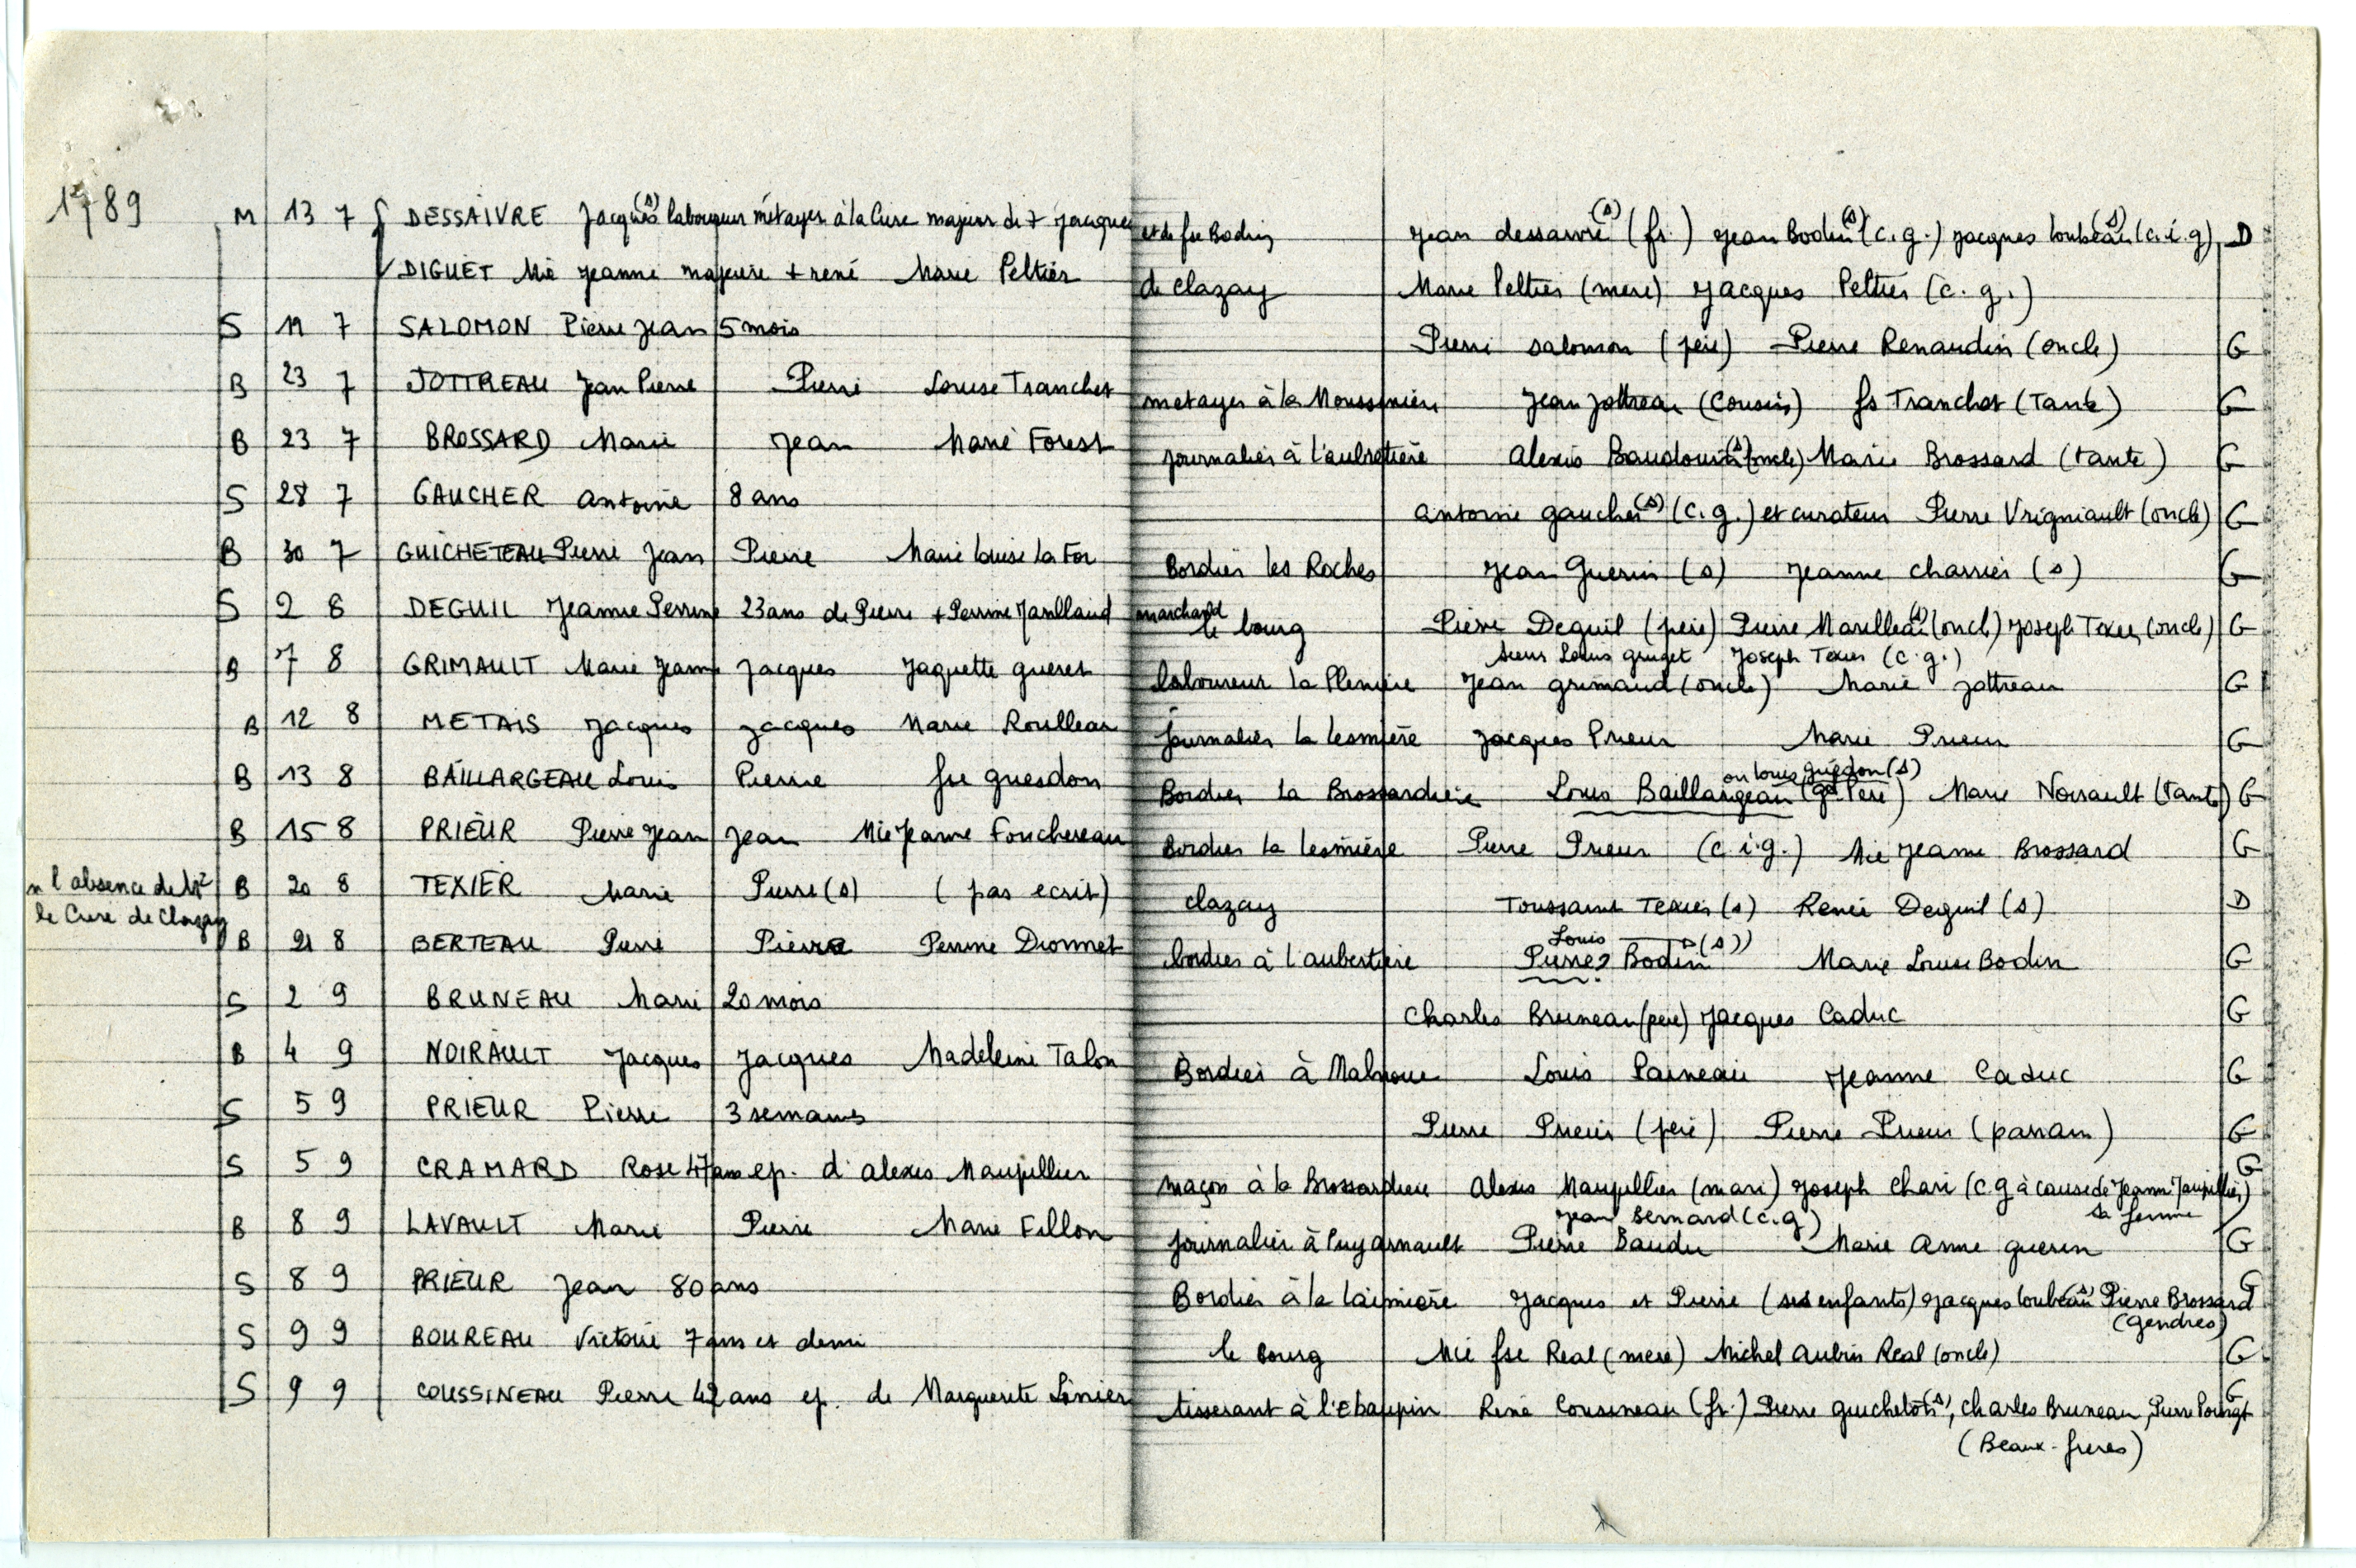 1789 M 13 7 DESSAIVRE Jacques (s) laboureur métayer à la Cure majeur de + Jacques et de fse Bodin Jean dessaivre (s) (fr.) Jean Bodin (s) (c.g.) Jacques loubeau (s) (c.i.g) D
DIGUET Mie Jeanne majeure + rené Marie Peltier de Clazay Marie Peltier (mere) Jacques Peltier (c.g.)
S 17 SALOMON Pierre Jean 5 mois Pierre Salomon (pere) Pierre Renaudin (oncle) G
B 23 7 JOTTREAU Jean Pierre Pierre Louise Tranchet metayer à la Moussinière Jean Jottreau (Cousin) fs Tranchet (Tante) G
B 23 7 BROSSARD Marie Jean Marie Forest journalier à l'aubretière Alexis Baudouin (s) (oncle) Marie Brossard (tante) G
S 28 7 GAUCHER Antoine 8 ans antoine gaucher (s) (c.g.) et curateur Pierre Vrigniault (oncle) G
B 30 7 GUICHETEAU Pierre Jean Pierre Marie louise la For Bordier les Roches Jean Guerin (s) Jeanne charrier (s) G
S 2 8 DEGUIL Jeanne Perrine 23 ans de Pierre + Perrine marchand le bourg Pierre Deguil (pere) Pierre (s) (oncle) Joseph Texier (oncle) G
sieur Louis gruget Joseph Texier (c.g.)
B 7 8 GRIMAULT Marie Jeanne Jacques Jaquette gueret laboureur la Plenière Jean grimaud (oncle) Marie Jottreau G
B 12 8 METAIS Jacques Jacques Marie Roulleau journalier la lesmière Jacques Prieur Marie Prieur G
ou louis guesdon (s)
B 13 8 BAILLARGEAU Louis Pierre fse guesdon Bordier la Brossardière Louis Baillargeau (gd Pere) Marie Noirault (tante) G
B 15 8 PRIEUR Pierre Jean Jean Mie Jeanne Fouchereau Bordier la lesmière Pierre Prieur (c.i.g.) Mie Jeanne Brossard G
n l'absence de Mr le Curé de Clazay B 20 8 TEXIER Marie Pierre (s) (pas ecrit) clazay Toussaint Texier (s) Renée Deguil (s) D
Louis (s))
B 21 8 BERTEAU Pierre Pierre Perrine Dionnet bordier à l'aubertière Pierre? Bodin Marie Louise Bodin G
S 2 9 BRUNEAU Marie 20 mois Charles Bruneau (pere) Jacques Caduc G
B 4 9 NOIRAULT Jacques Jacques Madeleine Talon Bordier à Malnoue Louis Paineau Jeanne Caduc G
S 5 9 PRIEUR Pierre 3 semaines Pierre Prieur (pere) Pierre Prieur (parrain) G
S 5 9 CRAMARD Rose 47 ans ep. d'alexis Maupillier maçon à la Brossardiere Alexis Maupillier (mari) Joseph Chari (c g à cause de Jeanne Maupillier) G
sa femme
Jean Bernard (c.g)
B 8 9 LAVAULT Marie Pierre Marie Fillon journalier à Puyarnault Pierre Baudu Marie Anne guerin G
S 8 9 PRIEUR Jean 80 ans Bordier à la laimière Jacques et Pierre (ses enfants) Jacques loubeau (s) Pierre Brossard G
(gendres)
S 9 9 BOUREAU Victoire 7 ans et demi le bourg Mie fse Real (mere) Michel Aubin Real (oncle) G
S 9 9 COUSSINEAU Pierre 42 ans ep. de Marguerite Linier tisserant à l'Ebaupin René Cousineau (fr.) Pierre (s), charles Bruneau, Pierre G
(Beaux-freres)